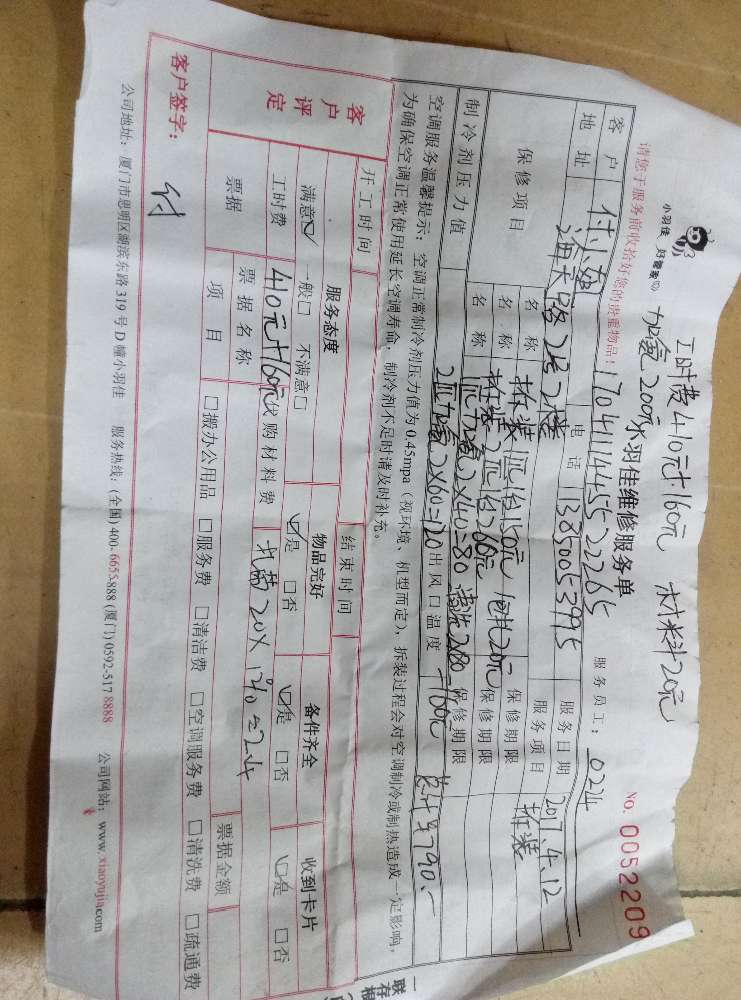 工时费410元+160元 材料20元
加氨200元
小羽佳 好管家
小羽佳维修服务单
NO. 0052209
请您于服务前收拾好您的贵重物品!
1704111445522265
服务员工: 0224
客户 付小姐 电话 13850053995 服务日期 2017.4.12
地址 海天路 2号2楼 服务项目 拆装
保修项目 名称 拆装1匹1台150元 1个孔20元 保修期限
名称 拆装2匹1台260元 保修期限
名称 1匹加氨2×40=80 清洗2×80=160元 保修期限
制冷剂压力值 2匹加氨2×60=120 出风口温度 总计¥790.-
空调服务温馨提示:空调正常制冷剂压力值为0.45mpa(视环境、机型而定),拆装过程会对空调制冷或制热造成一定影响,
为确保空调正常使用延长空调寿命,制冷剂不足时请及时补充。
开工时间 结束时间
客户评定 服务态度 物品完好 备件齐全 收到卡片
满意☑ 一般□ 不满意□ ☑是 □否 ☑是 □否 ☑是 □否
工时费 410元+160元 代购材料费 孔蓋20×12%=2.4
票据 票据名称 票据金额
项目 □搬办公用品 □服务费 □清洁费 □空调服务费 □清洗费 □疏通费
客户签字: 付
公司地址:厦门市思明区湖滨东路319号D幢小羽佳 服务热线:(全国)400-6655-888 (厦门)0592-517 8888 公司网站:www.xiaoyujia.com
一联存根